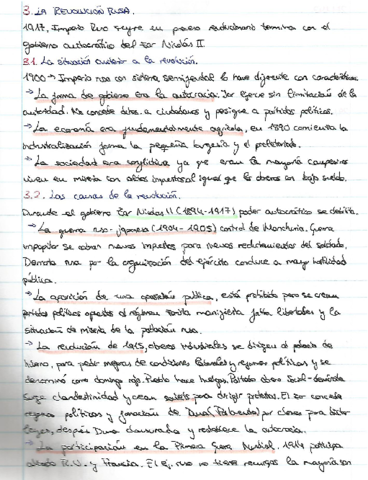 3. LA REVOLUCIÓN RUSA.
1917, Imperio Ruso surgre un proceso revolucionario termina con el
gobierno autocrático del zar Nicolás II
3.1. La situación anterior a la revolución.
1900 → Imperio ruso con sistema semifeudal lo hace diferente con características
→ La forma de gobierno era la autocracia. Zar ejerce sin limitación de la
autoridad. No concede dchos. a ciudadanos y persigue a partidos políticos.
→ La economía era fundamentalmente agrícola, en 1890 comienza la
industrialización forma la pequeña burguesía y el proletariado.
→ La sociedad era conflictiva ya que eran la mayoría campesinos
viven en miseria con altos impuestos al igual que los obreros con bajo sueldo.
3.2. Las causas de la revolución.
Durante el gobierno zar Nicolás II (1894-1917) poder autocrático se debilita.
→ La guerra ruso-japonesa (1904-1905) control de Manchuria. Guerra
impopular se cobran nuevos impuestos para nuevos reclutamientos del soldado.
Derrota rusa por la organización del ejército conduce a mayor hostilidad
pública.
→ La aparición de una oposición política, está prohibida pero se crean
partidos políticos opuestos al régimen zarista manifiesta falta libertades y la
situación de miseria de la población rusa.
→ La revolución de 1905, obreros industriales se dirigen al palacio de
invierno, para pedir mejoras de condiciones laborales y reformas políticas y se
denominó como domingo rojo. Pueblo hace huelgas. Partido obrero Social-demócrata
surge clandestinidad y crean soviets para dirigir protestas. El zar concede
reformas políticas y formación de Duma (Parlamento) por clases para dictar
leyes, después Duma clausurada y restablece la autocracia.
→ La participación en la Primera Guerra Mundial. 1914 participa
aliado R.U. y Francia. El Ej. ruso no tiene recursos la mayoría son